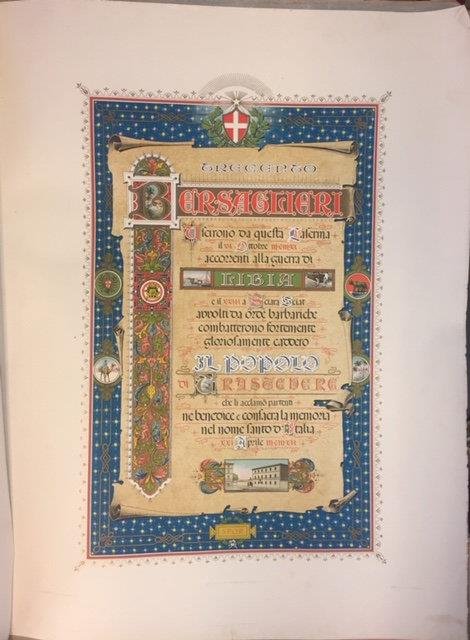 TRECENTO
BERSAGLIERI
Uscirono da questa Caserma
il VI Ottobre MCMXI
accorrenti alla guerra di
LIBIA
e il XXIII a Sciara Sciat
avvolti da orde barbariche
combatterono fortemente
gloriosamente caddero
IL POPOLO
DI TRASTEVERE
che li acclamò partenti
ne benedice e consacra la memoria
nel nome santo d'Italia
XXI Aprile MCMXII